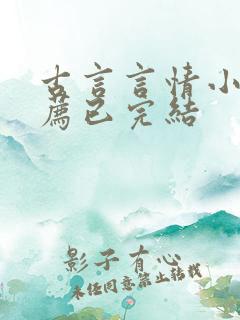 古言言情小
薦已完結
影子有心
未经同意禁止转载